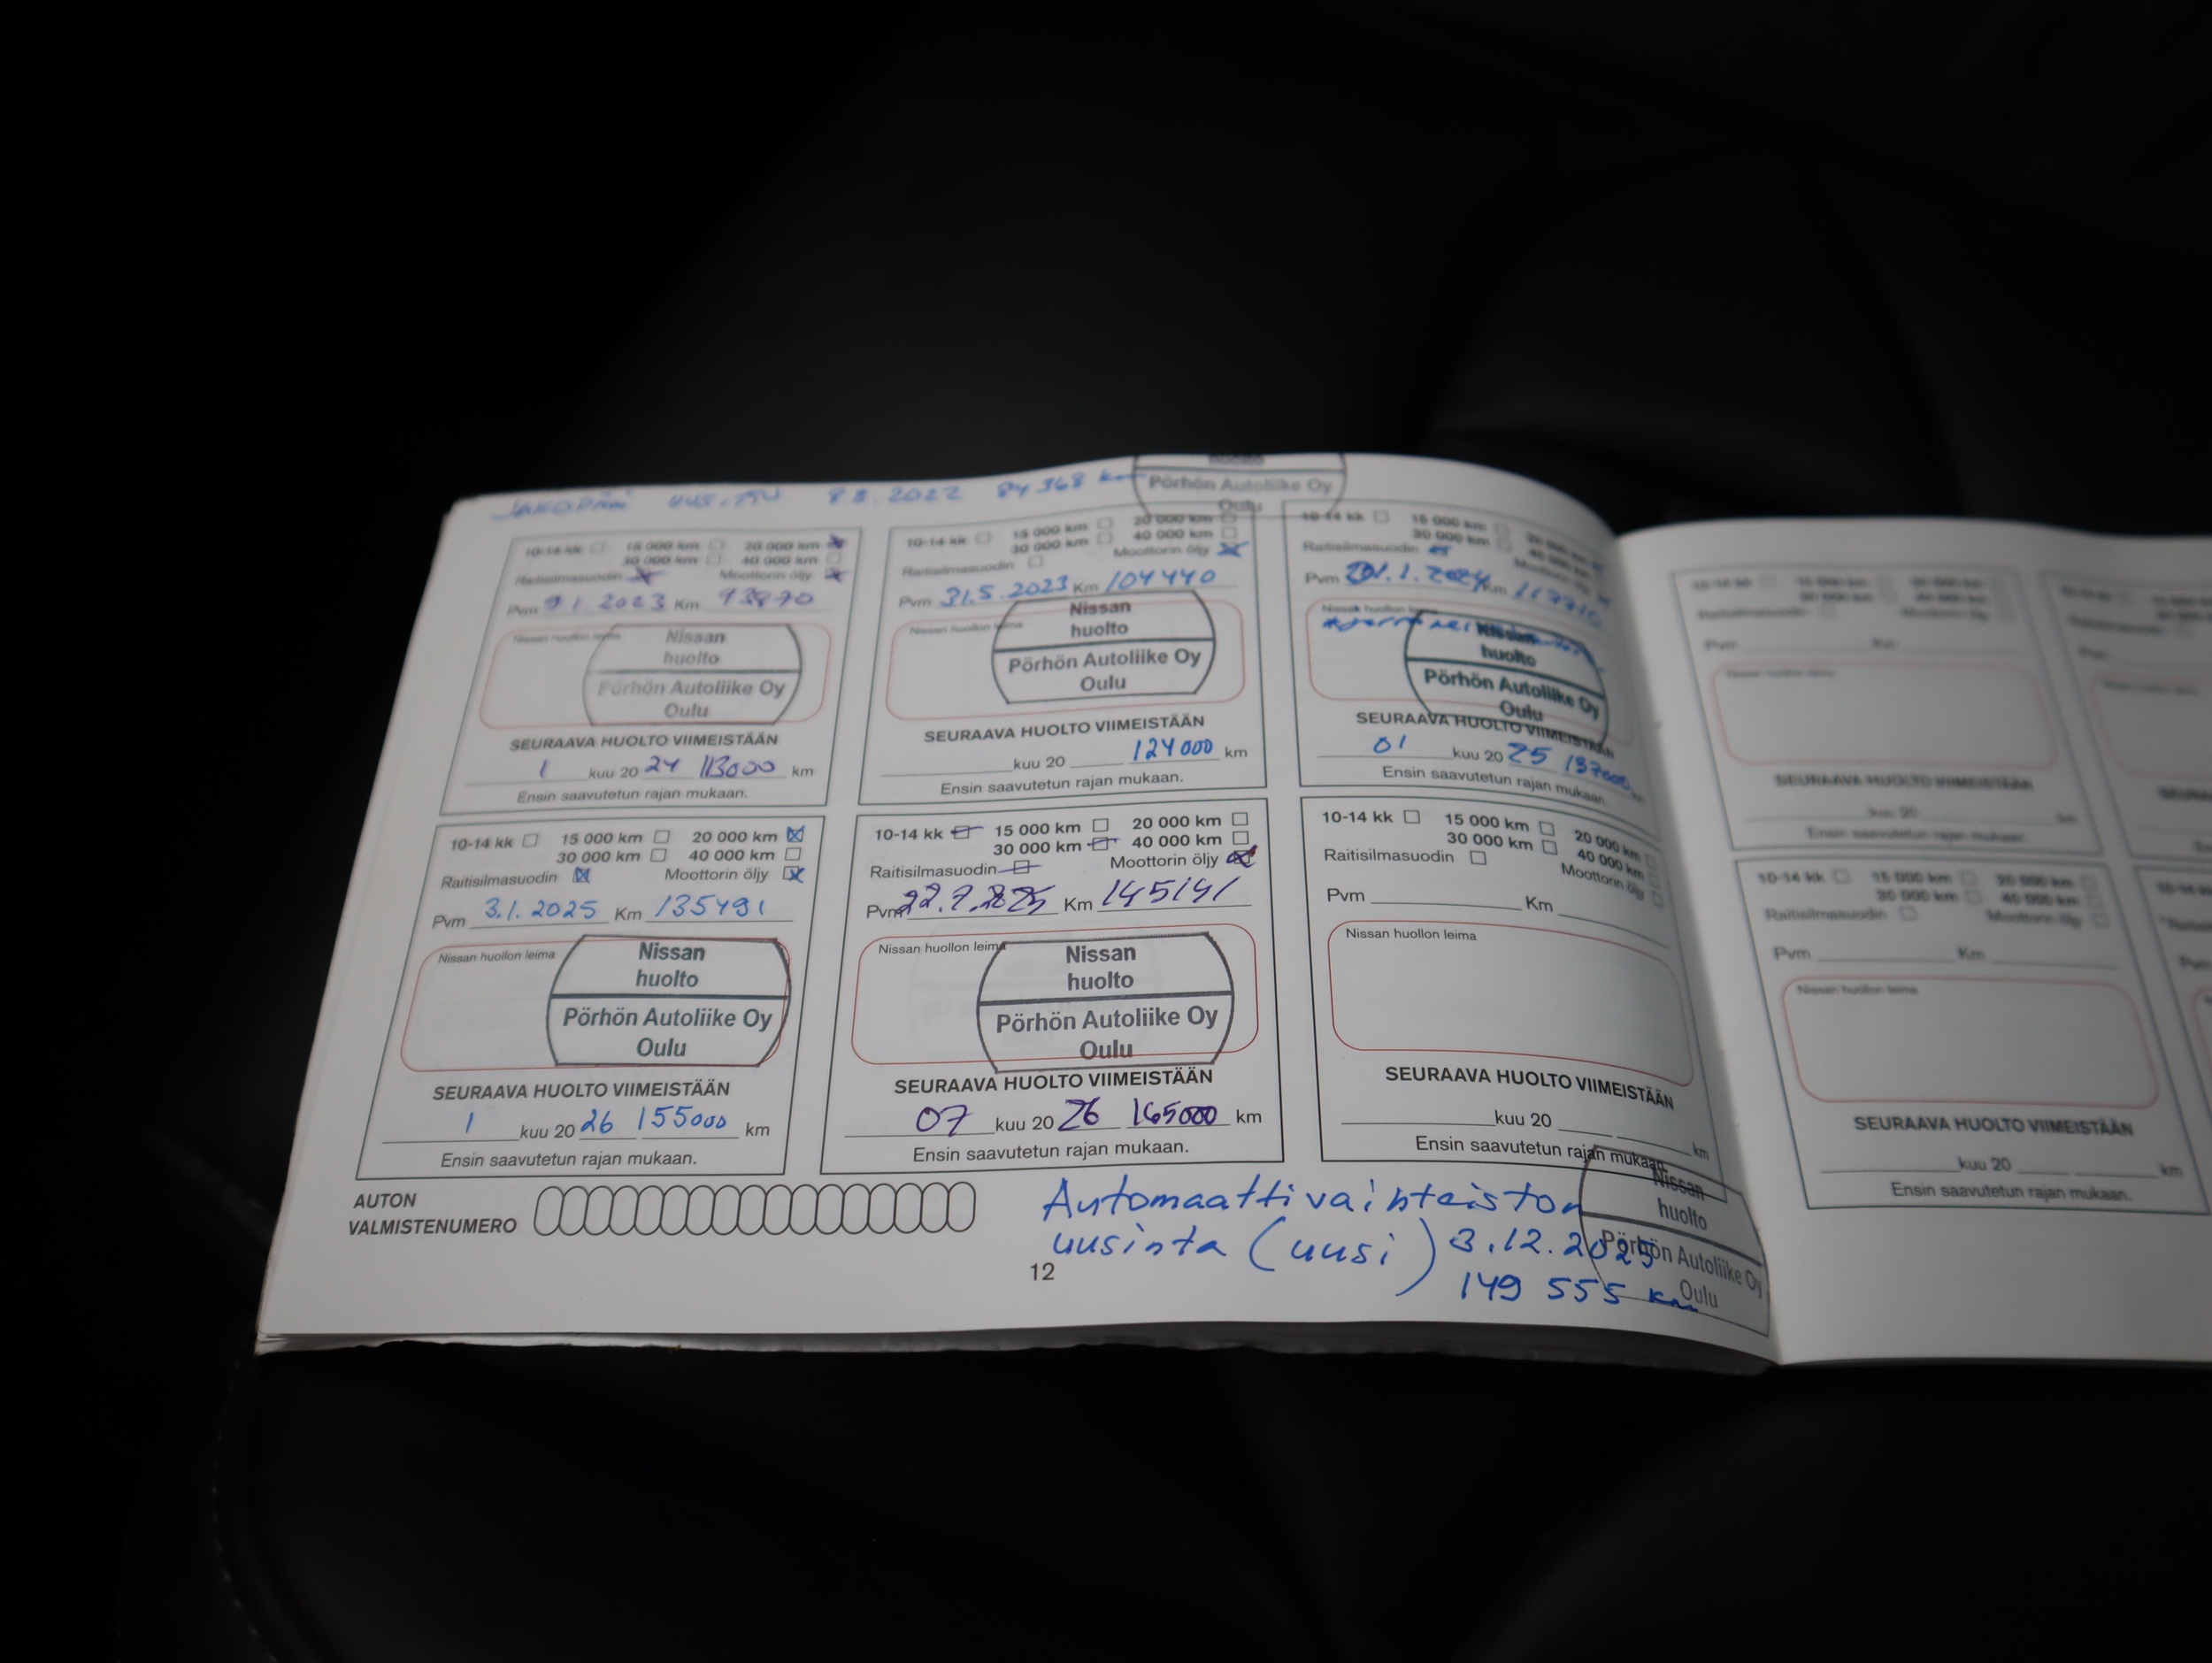 JAKOPÄÄ UUSITTU 8.8.2022 84368 km
Pörhön Autoliike Oy
Oulu
10-14 kk 15 000 km 20 000 km
30 000 km 40 000 km
Raitisilmasuodin Moottorin öljy
Pvm 9.1.2023 Km 93870
Nissan huollon leima
Nissan
huolto
Pörhön Autoliike Oy
Oulu
SEURAAVA HUOLTO VIIMEISTÄÄN
1 kuu 20 24 113000 km
Ensin saavutetun rajan mukaan.
10-14 kk 15 000 km 20 000 km
30 000 km 40 000 km
Raitisilmasuodin Moottorin öljy
Pvm 31.5.2023 Km 104440
Nissan huollon leima
Nissan
huolto
Pörhön Autoliike Oy
Oulu
SEURAAVA HUOLTO VIIMEISTÄÄN
kuu 20 124000 km
Ensin saavutetun rajan mukaan.
10-14 kk 15 000 km 20 000 km
30 000 km 40 000 km
Raitisilmasuodin Moottorin öljy
Pvm 1.2024 Km
Nissan huollon leima
Nissan
huolto
Pörhön Autoliike Oy
Oulu
SEURAAVA HUOLTO VIIMEISTÄÄN
01 kuu 20 25 137000 km
Ensin saavutetun rajan mukaan.
10-14 kk 15 000 km 20 000 km
30 000 km 40 000 km
Raitisilmasuodin Moottorin öljy
Pvm 3.1.2025 Km 135491
Nissan huollon leima
Nissan
huolto
Pörhön Autoliike Oy
Oulu
SEURAAVA HUOLTO VIIMEISTÄÄN
1 kuu 20 26 155000 km
Ensin saavutetun rajan mukaan.
10-14 kk 15 000 km 20 000 km
30 000 km 40 000 km
Raitisilmasuodin Moottorin öljy
Pvm 22.7.2025 Km 145191
Nissan huollon leima
Nissan
huolto
Pörhön Autoliike Oy
Oulu
SEURAAVA HUOLTO VIIMEISTÄÄN
07 kuu 20 26 165000 km
Ensin saavutetun rajan mukaan.
10-14 kk 15 000 km 20 000 km
30 000 km 40 000 km
Raitisilmasuodin Moottorin öljy
Pvm Km
Nissan huollon leima
SEURAAVA HUOLTO VIIMEISTÄÄN
kuu 20 km
Ensin saavutetun rajan mukaan.
AUTON
VALMISTENUMERO
Automaattivaihteiston
uusinta (uusi) 3.12.2025
149 555 km
Nissan
huolto
Pörhön Autoliike Oy
Oulu
12
10-14 kk 15 000 km 20 000 km
30 000 km 40 000 km
Raitisilmasuodin Moottorin öljy
Pvm Km
Nissan huollon leima
SEURAAVA HUOLTO VIIMEISTÄÄN
kuu 20 km
Ensin saavutetun rajan mukaan.
10-14 kk 15 000 km 20 000 km
30 000 km 40 000 km
Raitisilmasuodin Moottorin öljy
Pvm Km
Nissan huollon leima
SEURAAVA HUOLTO VIIMEISTÄÄN
kuu 20 km
Ensin saavutetun rajan mukaan.